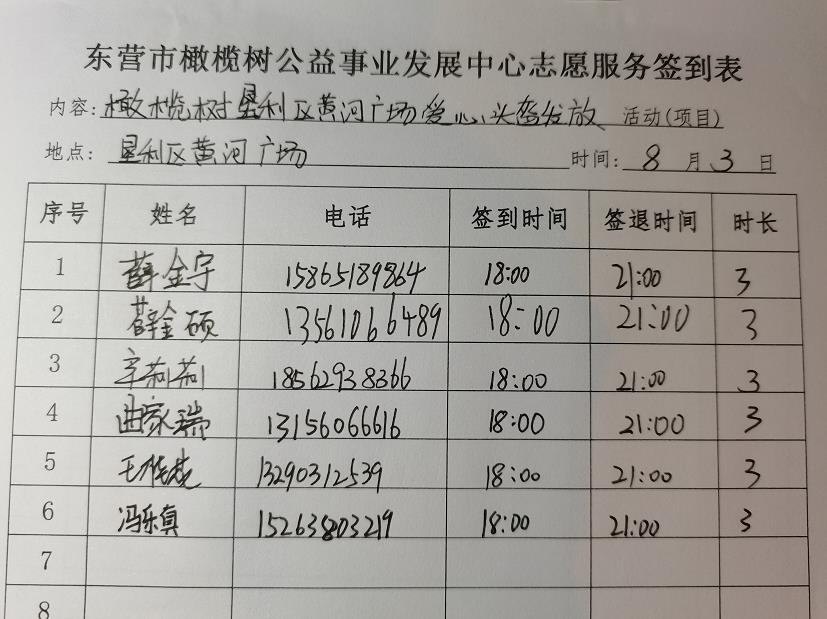 东营市橄榄树公益事业发展中心志愿服务签到表
内容:橄榄树垦利区黄河广场爱心头盔发放 活动(项目)
地点: 垦利区黄河广场 时间: 8 月 3 日
序号 姓名 电话 签到时间 签退时间 时长
1 薛金宇 15865189864 18:00 21:00 3
2 薛金硕 13561066489 18:00 21:00 3
3 莉莉 18562938366 18:00 21:00 3
4 曲家瑞 13156066616 18:00 21:00 3
5 王 13290312539 18:00 21:00 3
6 冯乐真 15263803219 18:00 21:00 3
7
8